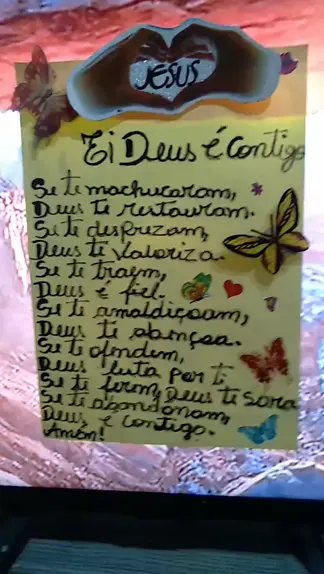 JESUS
Ei Deus é contigo
Se te machucaram,
Deus te restauram.
Se te desprezam,
Deus te valoriza.
Se te traem,
Deus é fiel.
Se te amaldiçoam,
Deus te abençoa.
Se te ofendem,
Deus luta por ti
Se te ferem, Deus te sara
Se te abandonam,
Deus é contigo.
Amém!